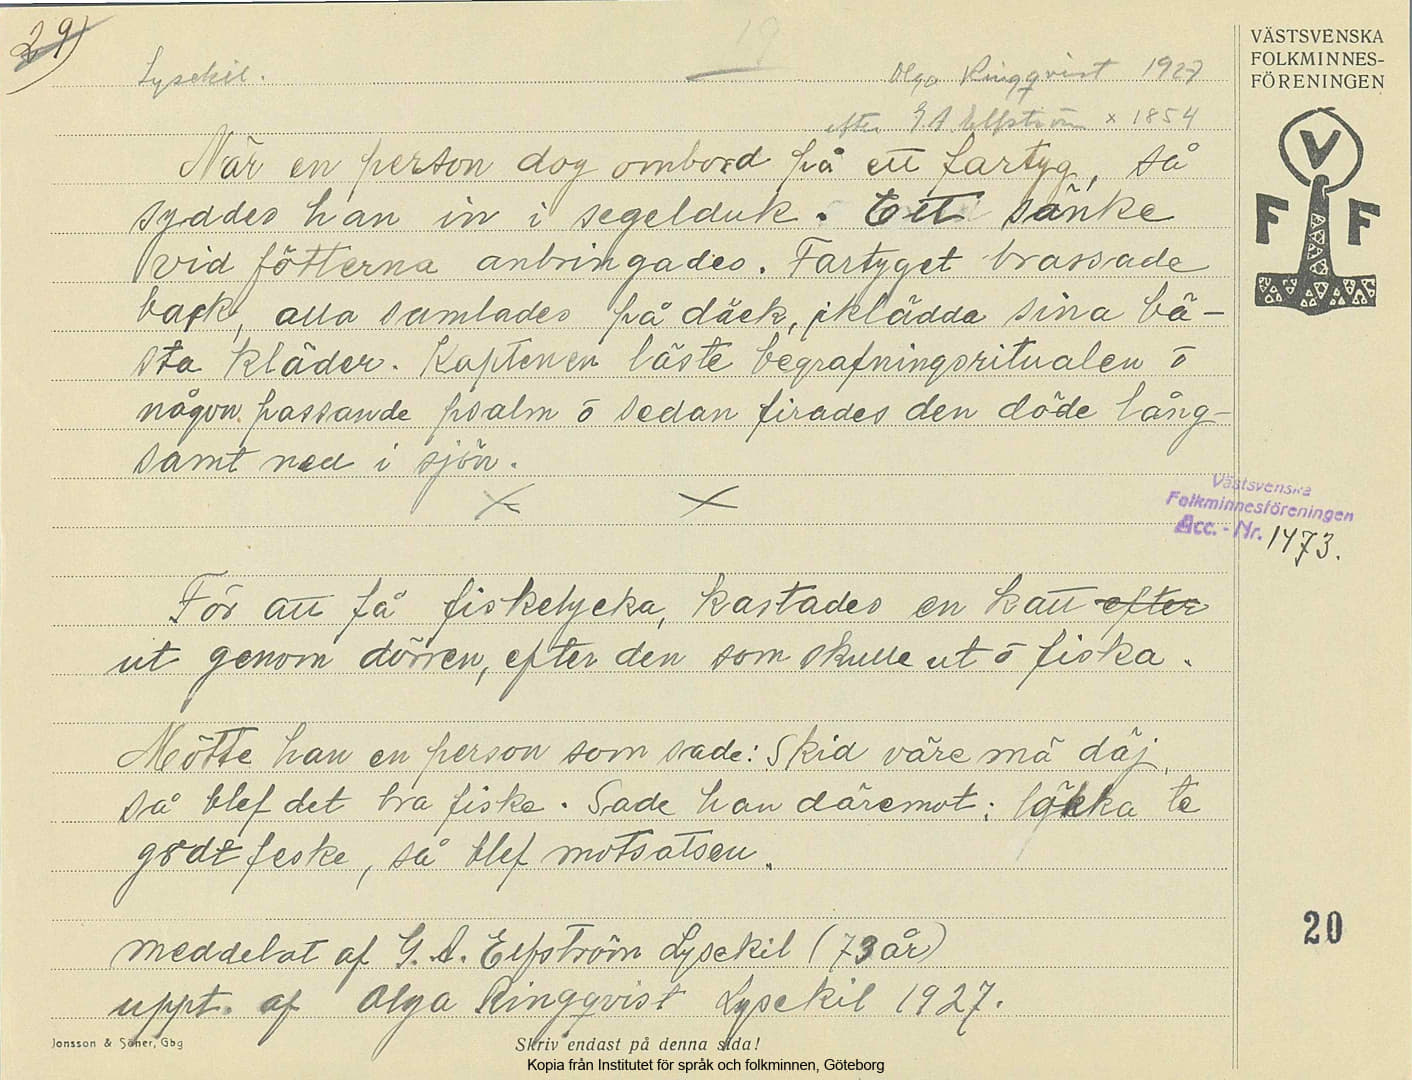 29)
Lysekil.
19
Olga Ringqvist 1927
efter G A Elfström x 1854
VÄSTSVENSKA
FOLKMINNES-
FÖRENINGEN
V
F F
När en person dog ombord på ett fartyg, så
syddes han in i segelduk. Ett sänke
vid fötterna anbringades. Fartyget brassade
back, alla samlades på däck, iklädda sina bä-
sta kläder. Kaptenen läste begrafningsritualen o
någon passande psalm o sedan firades den döde lång-
samt ned i sjön.
x x
Västsvenska
Folkminnesföreningen
Acc.-Nr. 1473.
För att få fiskelycka, kastades en katt efter
ut genom dörren, efter den som skulle ut o fiska.
Mötte han en person som sade: Skid väre mä däj,
så blef det bra fiske. Sade han däremot: lökka te
godt feske, så blef motsatsen.
20
meddelat af G. A. Elfström Lysekil (73 år)
uppt. af Olga Ringqvist Lysekil 1927.
Jonsson & Söner, Gbg
Skriv endast på denna sida!
Kopia från Institutet för språk och folkminnen, Göteborg